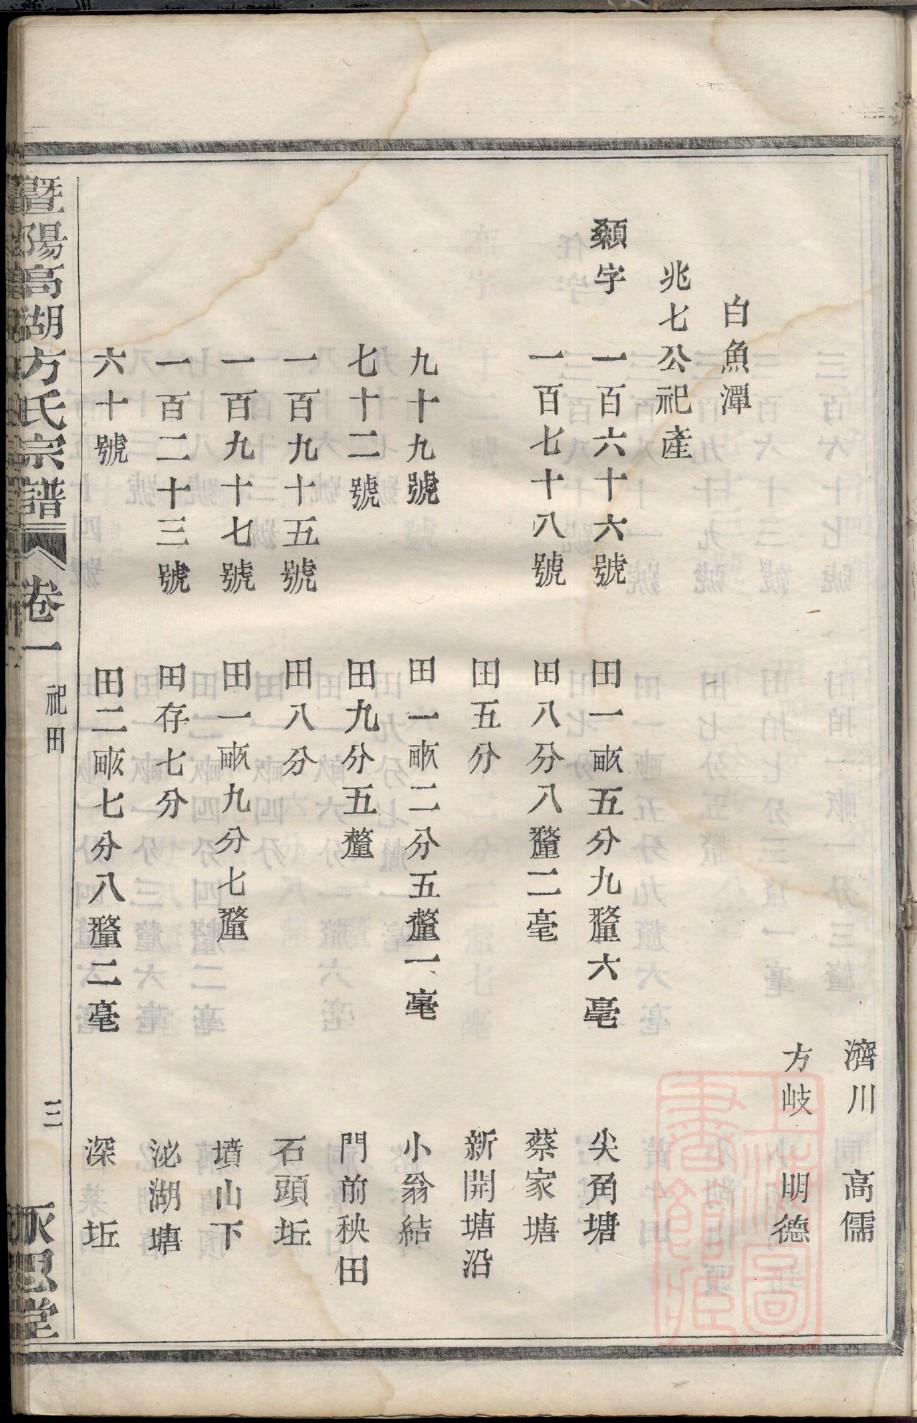 濟川　高儒
方岐　明德
白魚潭
兆七公祀產
纇字　一百六十六號　田一畝五分九釐六毫　尖角塘
一百七十八號　田八分八釐二毫　蔡家塘
田五分　新開塘沿
九十九號　田一畝二分五釐一毫　小翁結
七十二號　田九分五釐　門前秧田
一百九十五號　田八分　石頭坵
一百九十七號　田一畝九分七釐　墳山下
一百二十三號　田存七分　泌湖塘
六十號　田二畝七分八釐二毫　深坵
暨陽高湖方氏宗譜　卷一　祀田　三　永思堂